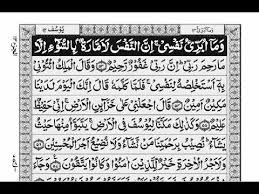 وَمَآ اُبَرِّئُ نَفْسِیْ ۚ اِنَّ النَّفْسَ لَاَمَّارَةٌۢ بِالسُّوْٓءِ اِلَّا
مَا رَحِمَ رَبِّیْ ؕ اِنَّ رَبِّیْ غَفُوْرٌ رَّحِیْمٌ ۝ وَقَالَ الْمَلِكُ ائْتُوْنِیْ
بِهٖۤ اَسْتَخْلِصْهُ لِنَفْسِیْ ۚ فَلَمَّا كَلَّمَهٗ قَالَ اِنَّكَ الْیَوْمَ لَدَیْنَا
مَكِیْنٌ اَمِیْنٌ ۝ قَالَ اجْعَلْنِیْ عَلٰی خَزَآئِنِ الْاَرْضِ ۚ اِنِّیْ حَفِیْظٌ
عَلِیْمٌ ۝ وَكَذٰلِكَ مَكَّنَّا لِیُوْسُفَ فِی الْاَرْضِ ۚ یَتَبَوَّاُ مِنْهَا حَیْثُ
یَشَآءُ ؕ نُصِیْبُ بِرَحْمَتِنَا مَنْ نَّشَآءُ وَلَا نُضِیْعُ اَجْرَ الْمُحْسِنِیْنَ ۝
وَلَاَجْرُ الْاٰخِرَةِ خَیْرٌ لِّلَّذِیْنَ اٰمَنُوْا وَكَانُوْا یَتَّقُوْنَ ۝